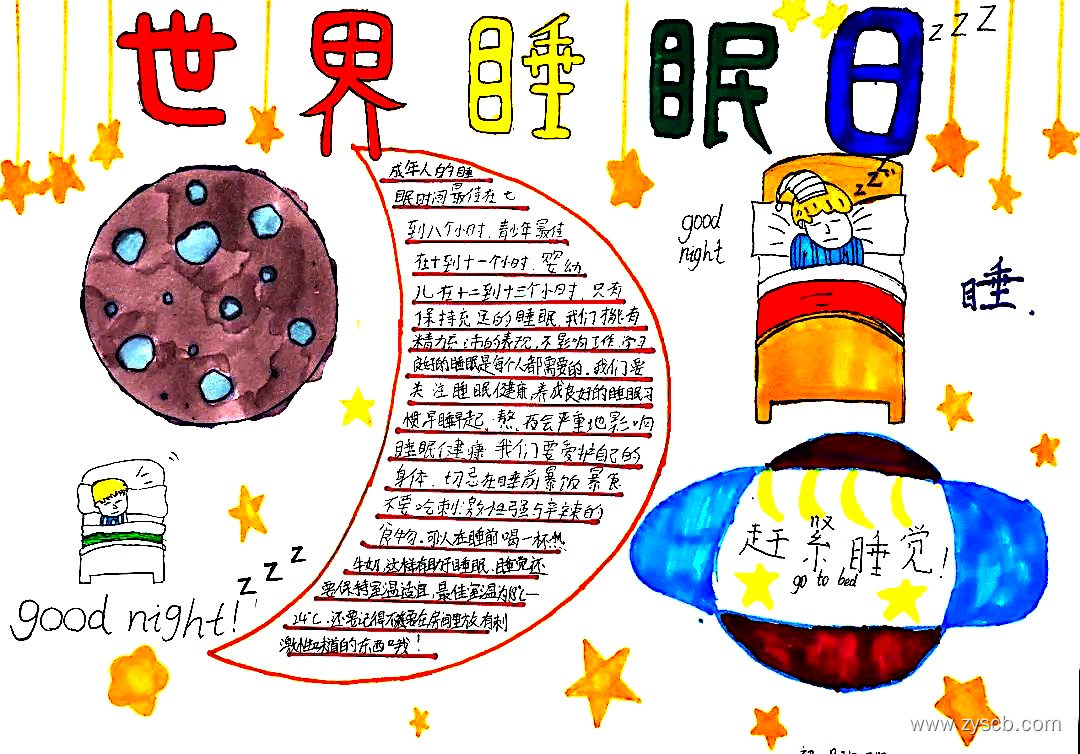 世界睡眠日
zZZ
成年人的睡
眠时间最佳在七
到八个小时,青少年最佳
在十到十一个小时,婴幼
儿在十二到十三个小时,只有
保持充足的睡眠,我们才能拥有
精力充沛的表现,不影响工作,学习
良好的睡眠是每个人都需要的,我们要
关注睡眠健康,养成良好的睡眠习
惯早睡早起,熬夜会严重地影响
睡眠健康 我们要爱护自己的
身体,切忌在睡前暴饭暴食
不要吃刺激性强与辛辣的
食物,可以在睡前喝一杯热
牛奶,这样有助于睡眠,睡觉还
要保持室温适宜,最佳室温为18℃—
24℃,还要记得不要在房间里放有刺
激性味道的东西哦!
good
night
zZZ
睡.
zZZ
good night!
赶紧睡觉!
go to bed
www.zyscb.com